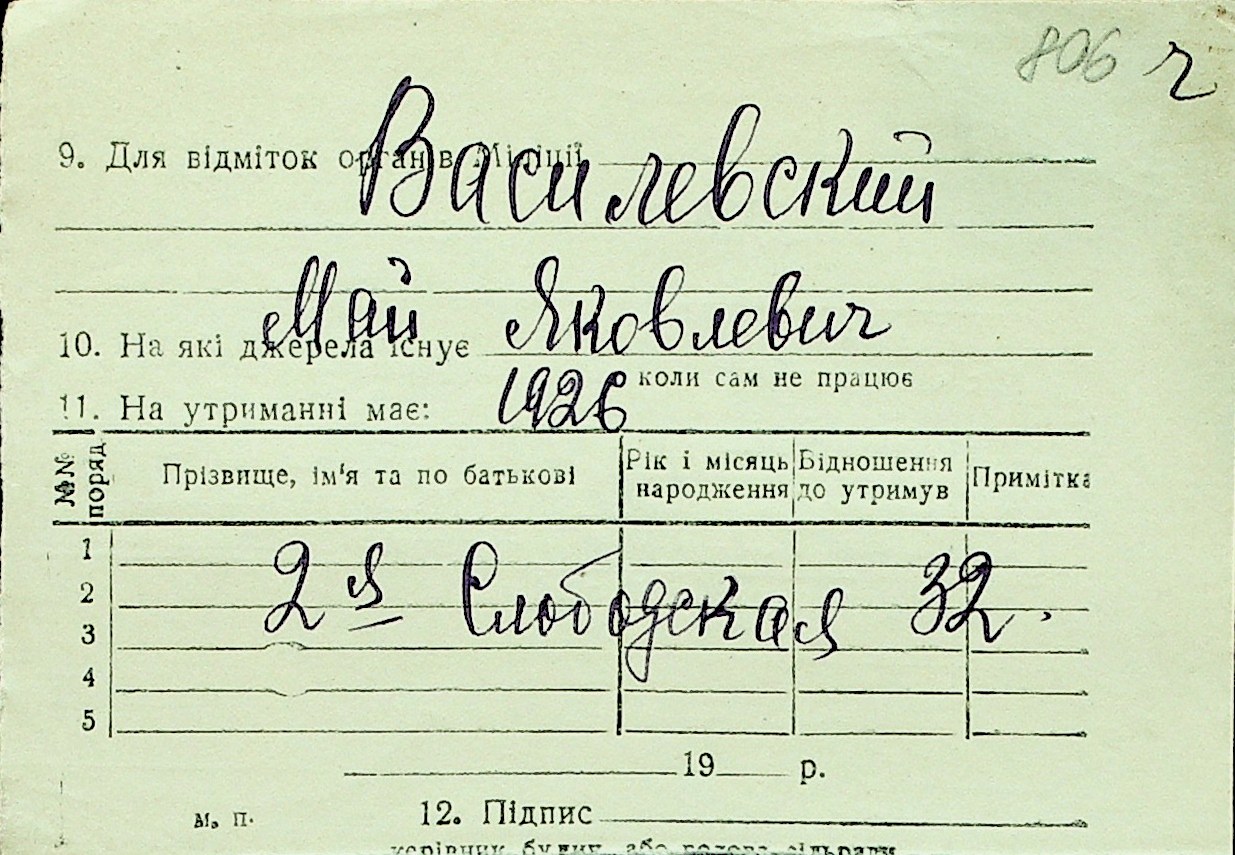 806 ч
Василевский
9. Для відміток органів Міліції
Май Яковлевич
10. На які джерела існує
коли сам не працює
1926
11. На утриманні має:
№№ поряд Прізвище, ім'я та по батькові Рік і місяць народження Відношення до утримув Примітка
1
2 я Слободская 32.
2
3
4
5
19 р.
М. П. 12. Підпис
керівник будин. або голова сільради